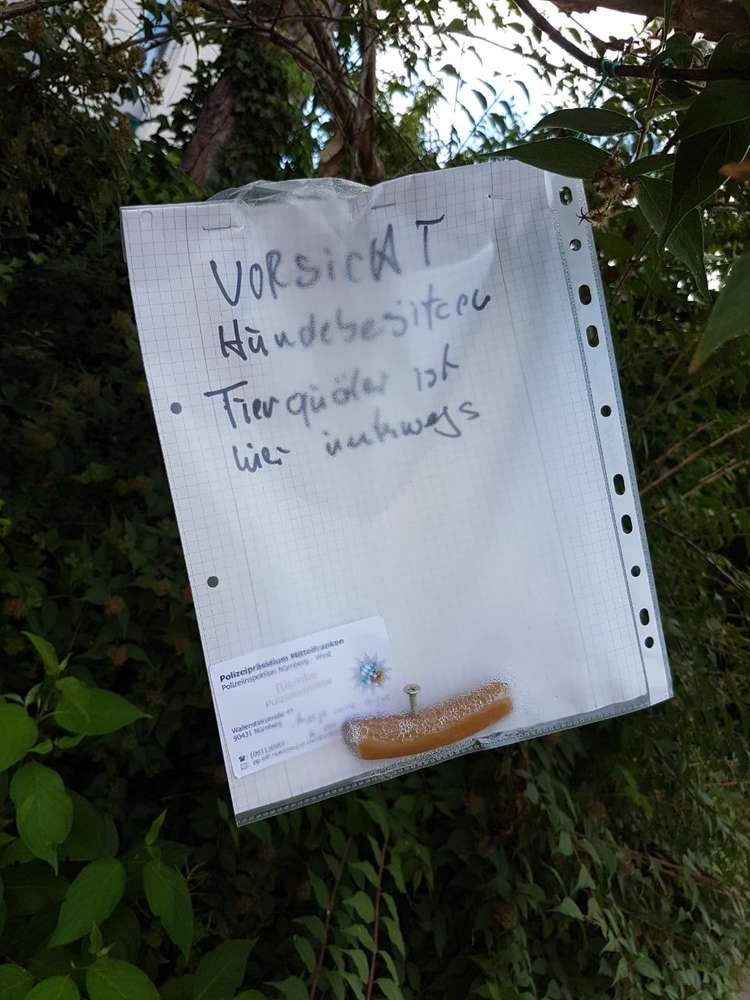 VORSICHT
Hundebesitzer
Tierquäler ist
hier unterwegs
Polizeipräsidium Mittelfranken
Polizeiinspektion Nürnberg - West
Wallensteinstraße 47
90431 Nürnberg